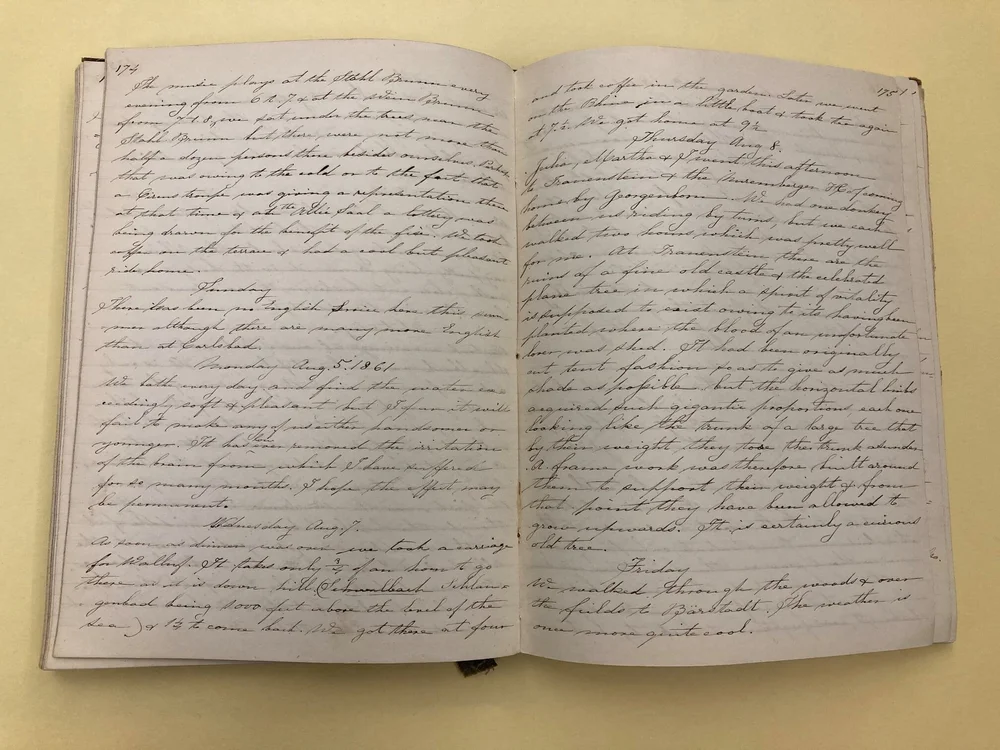 174
The music plays at the Stahl Brunn every
evening from 6 to 7 & at the Wein Brunn
from 7 to 8, we sat under the trees near the
Stahl Brunn but there were not more than
half a dozen persons there besides ourselves. Perhaps
that was owing to the cold or to the fact that
a Circus troupe was giving a representation there
at that time & at the Allee Saal a lottery was
being drawn for the benefit of the fire. We took
coffee on the terrace & had a cool but pleasant
ride home.
Sunday
There has been no English service here this sum
mer although there are many more English
than at Carlsbad.
Monday Aug. 5. 1861
We bathe every day and find the water ex
ceedingly soft & pleasant but I fear it will
fail to make any of us either handsomer or
younger. It has removed the irritation
of the brain from which I have suffered
for so many months. I hope the effect may
be permanent.
Wednesday Aug. 7.
As soon as dinner was over we took a carriage
for Walluf. It takes only of an hour to go
there as it is down hill (Schwalbach Schlan=
genbad being 1000 feet above the level of the
sea) & 1½ to come back. We got there at four
175
and took coffee in the garden. Later we went
on the Rhine in a little boat & took tea again
at 7½. We got home at 9½
Thursday Aug 8.
Julia, Martha & I went this afternoon
to Frauenstein & the Nuremberger Hof coming
home by Georgenborn. We had one donkey
between us riding by turns, but we each
walked two hours which was pretty well
for me. At Frauenstein there are the
ruins of a fine old castle & the celebrated
plane tree in which a spirit of vitality
is supposed to exist owing to its having been
planted where the blood of an unfortunate
lover was shed. It had been originally
cut tent fashion so as to give as much
shade as possible but the horizontal limbs
acquired such gigantic proportions each one
looking like the trunk of a large tree that
by their weight they tore the trunk asunder.
A frame work was therefore built around
them to support their weight & from
that point they have been allowed to
grow upwards. It is certainly a curious
old tree.
Friday
We walked through the woods & over
the fields to Bärstadt. The weather is
once more quite cool.